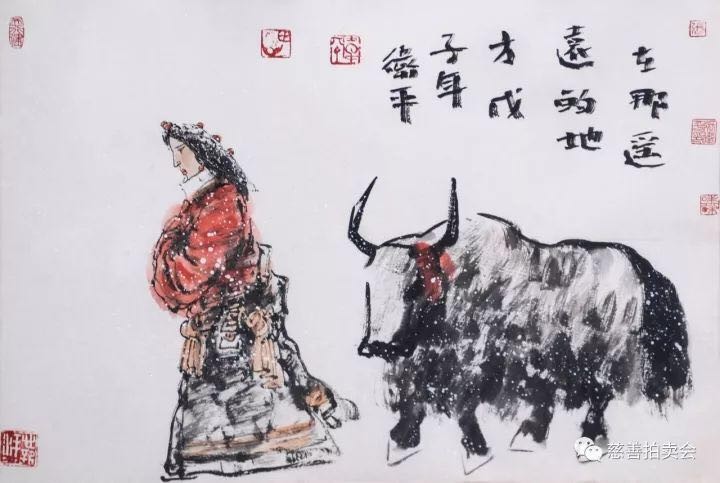 在那遥
遠的地
方戊
子年
平
慈善拍卖会